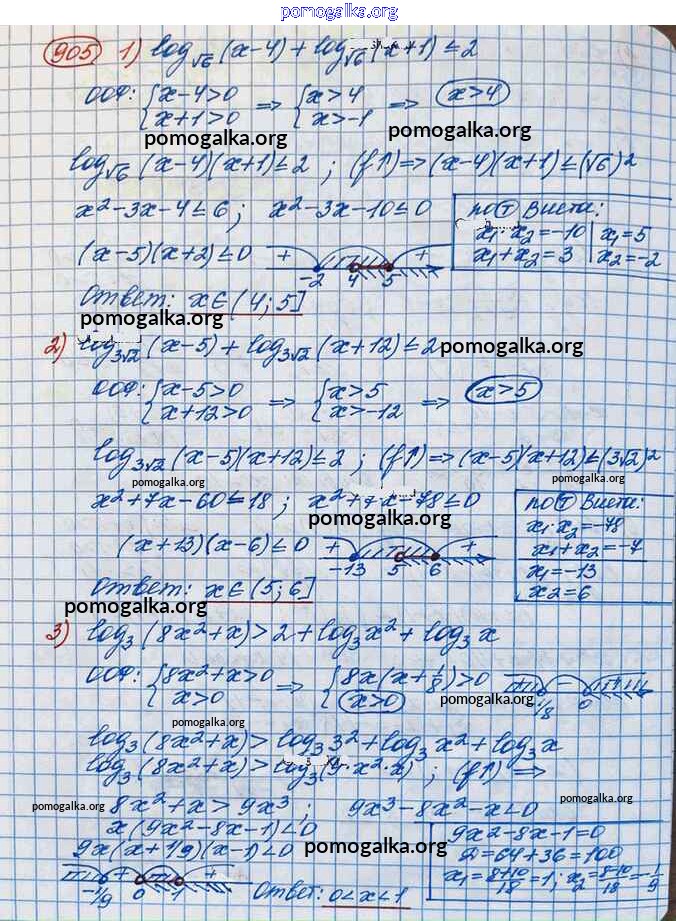 pomogalka.org
905 1) log√6 (x-4) + log√6 (x+1) ≤ 2
ООФ: { x-4>0 x+1>0 => { x>4 x>-1 => x>4
pomogalka.org pomogalka.org
log√6 (x-4)(x+1) ≤ 2 ; (f↑) => (x-4)(x+1) ≤ (√6)²
x²-3x-4 ≤ 6 ; x²-3x-10 ≤ 0
по Т Виета:
x₁·x₂ = -10 | x₁ = 5
x₁+x₂ = 3 | x₂ = -2
(x-5)(x+2) ≤ 0 + -2 4 5 +
Ответ: x∈(4; 5]
pomogalka.org
2) log3√2 (x-5) + log3√2 (x+12) ≤ 2 pomogalka.org
ООФ: { x-5>0 x+12>0 => { x>5 x>-12 => x>5
log3√2 (x-5)(x+12) ≤ 2 ; (f↑) => (x-5)(x+12) ≤ (3√2)²
pomogalka.org pomogalka.org
x²+7x-60 ≤ 18 ; x²+7x-78 ≤ 0
pomogalka.org
по Т Виета:
x₁·x₂ = -78
x₁+x₂ = -7
x₁ = -13
x₂ = 6
(x+13)(x-6) ≤ 0 + -13 5 6 +
Ответ: x∈(5; 6]
pomogalka.org
3) log₃ (8x²+x) > 2 + log₃ x² + log₃ x
ООФ: { 8x²+x>0 x>0 => { 8x(x+1/8)>0 x>0 + - + -1/8 0
pomogalka.org
pomogalka.org
log₃ (8x²+x) > log₃ 3² + log₃ x² + log₃ x
log₃ (8x²+x) > log₃ (9·x²·x) ; (f↑) =>
pomogalka.org pomogalka.org
8x²+x > 9x³ ; 9x³-8x²-x < 0
x(9x²-8x-1) < 0
9x(x+1/9)(x-1) < 0
pomogalka.org
9x²-8x-1=0
D=64+36=100
x₁=8+10/18=1; x₂=8-10/18=-1/9
-1/9 + 0 1 +
Ответ: 0<x<1